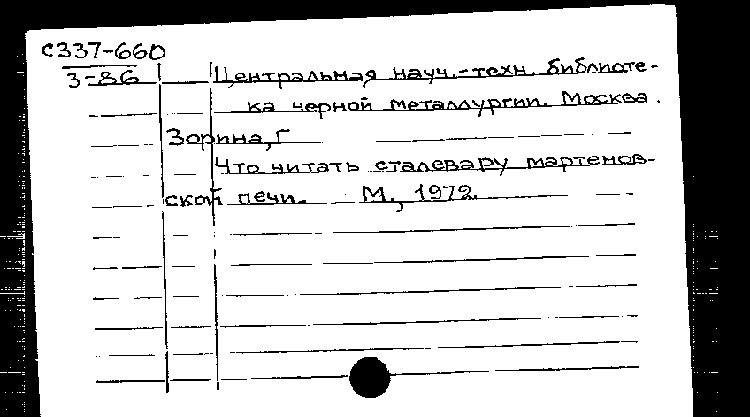 С337-660
З-86 Центральная науч.-техн. библиоте-
ка черной металлургии. Москва.
Зорина, Г
Что читать сталевару мартенов-
ской печи. М., 1972.